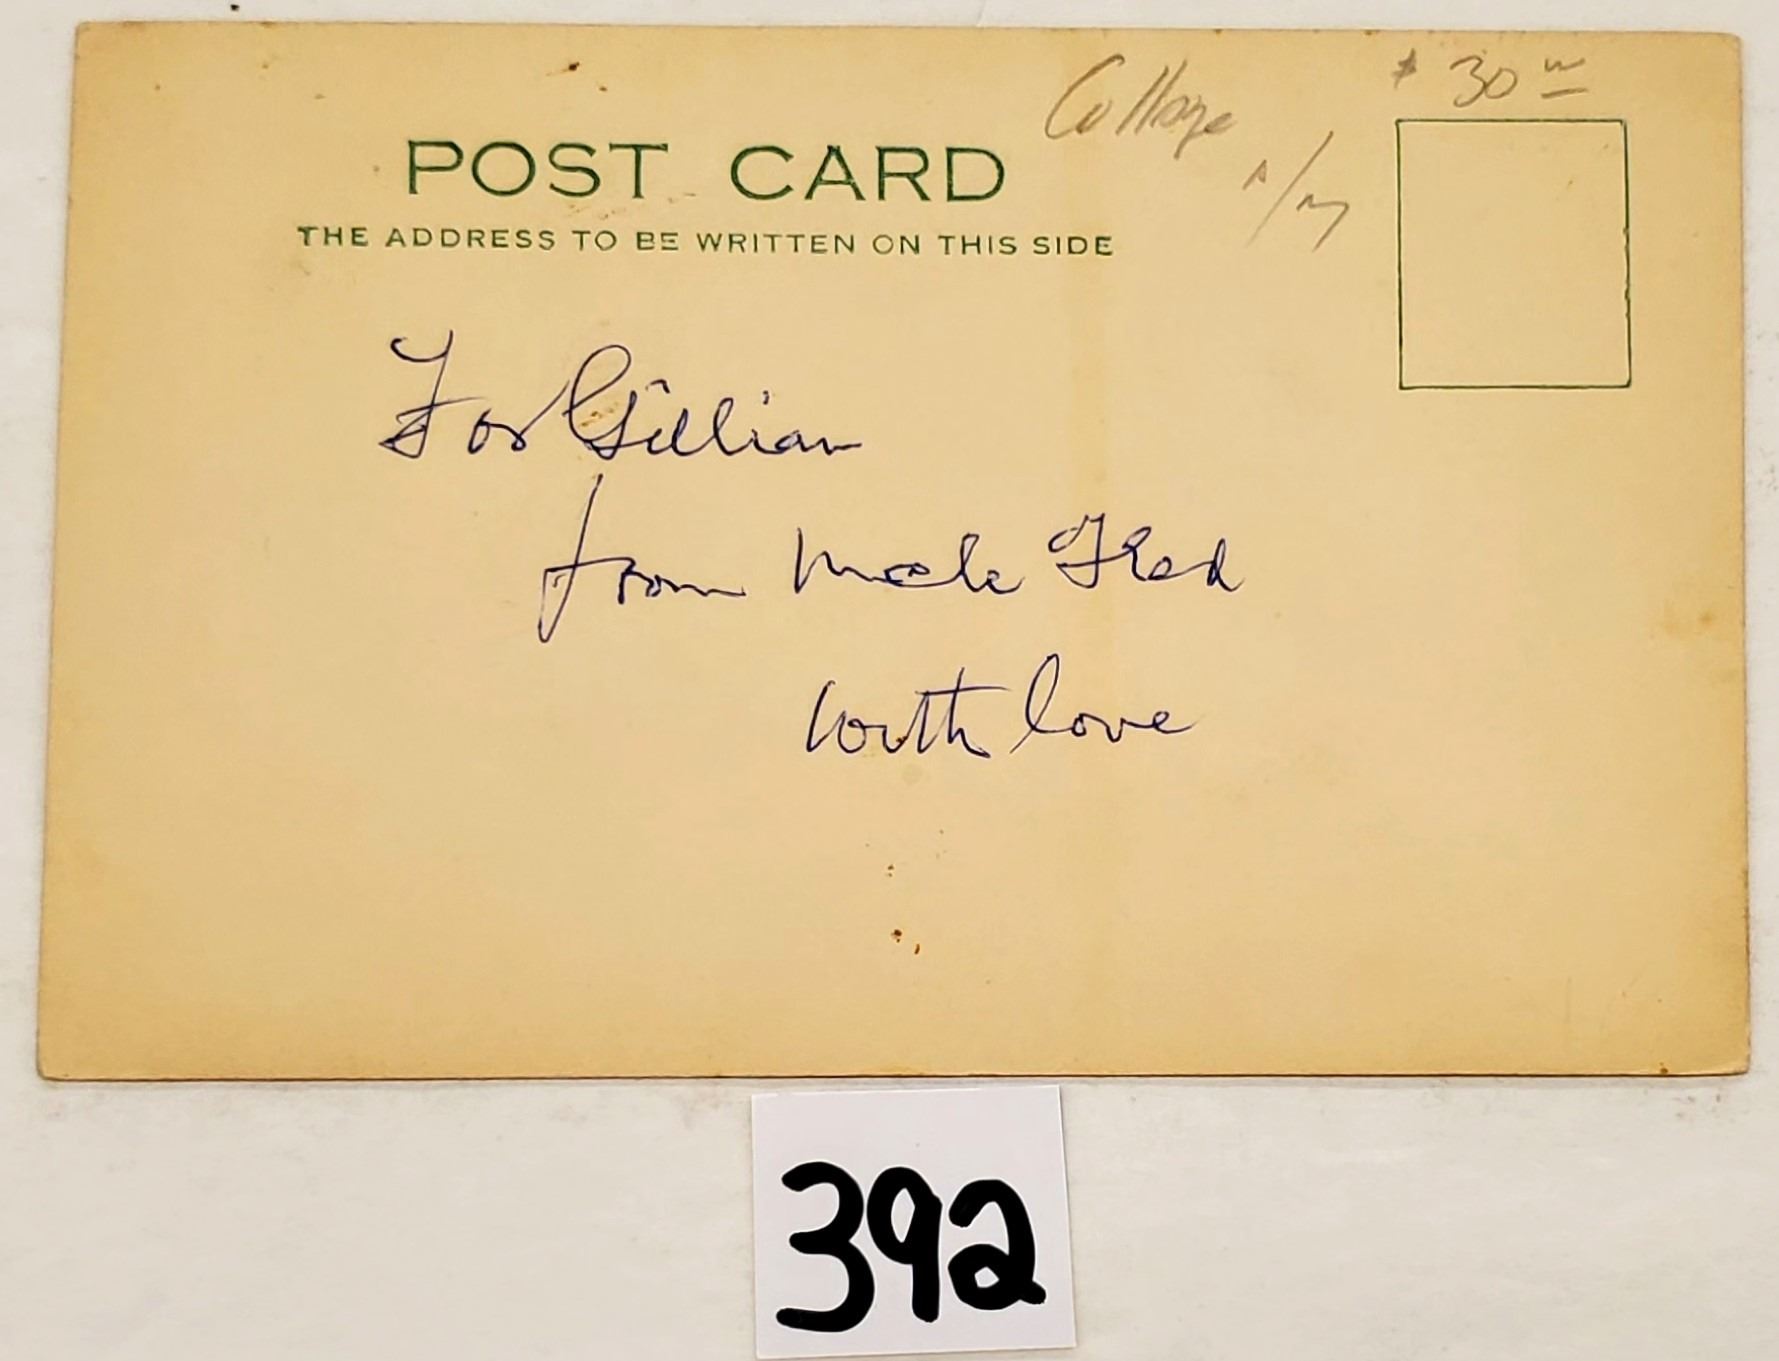 Collage
$ 30
POST CARD
THE ADDRESS TO BE WRITTEN ON THIS SIDE
For Gillian
from Uncle Fred
with love
392